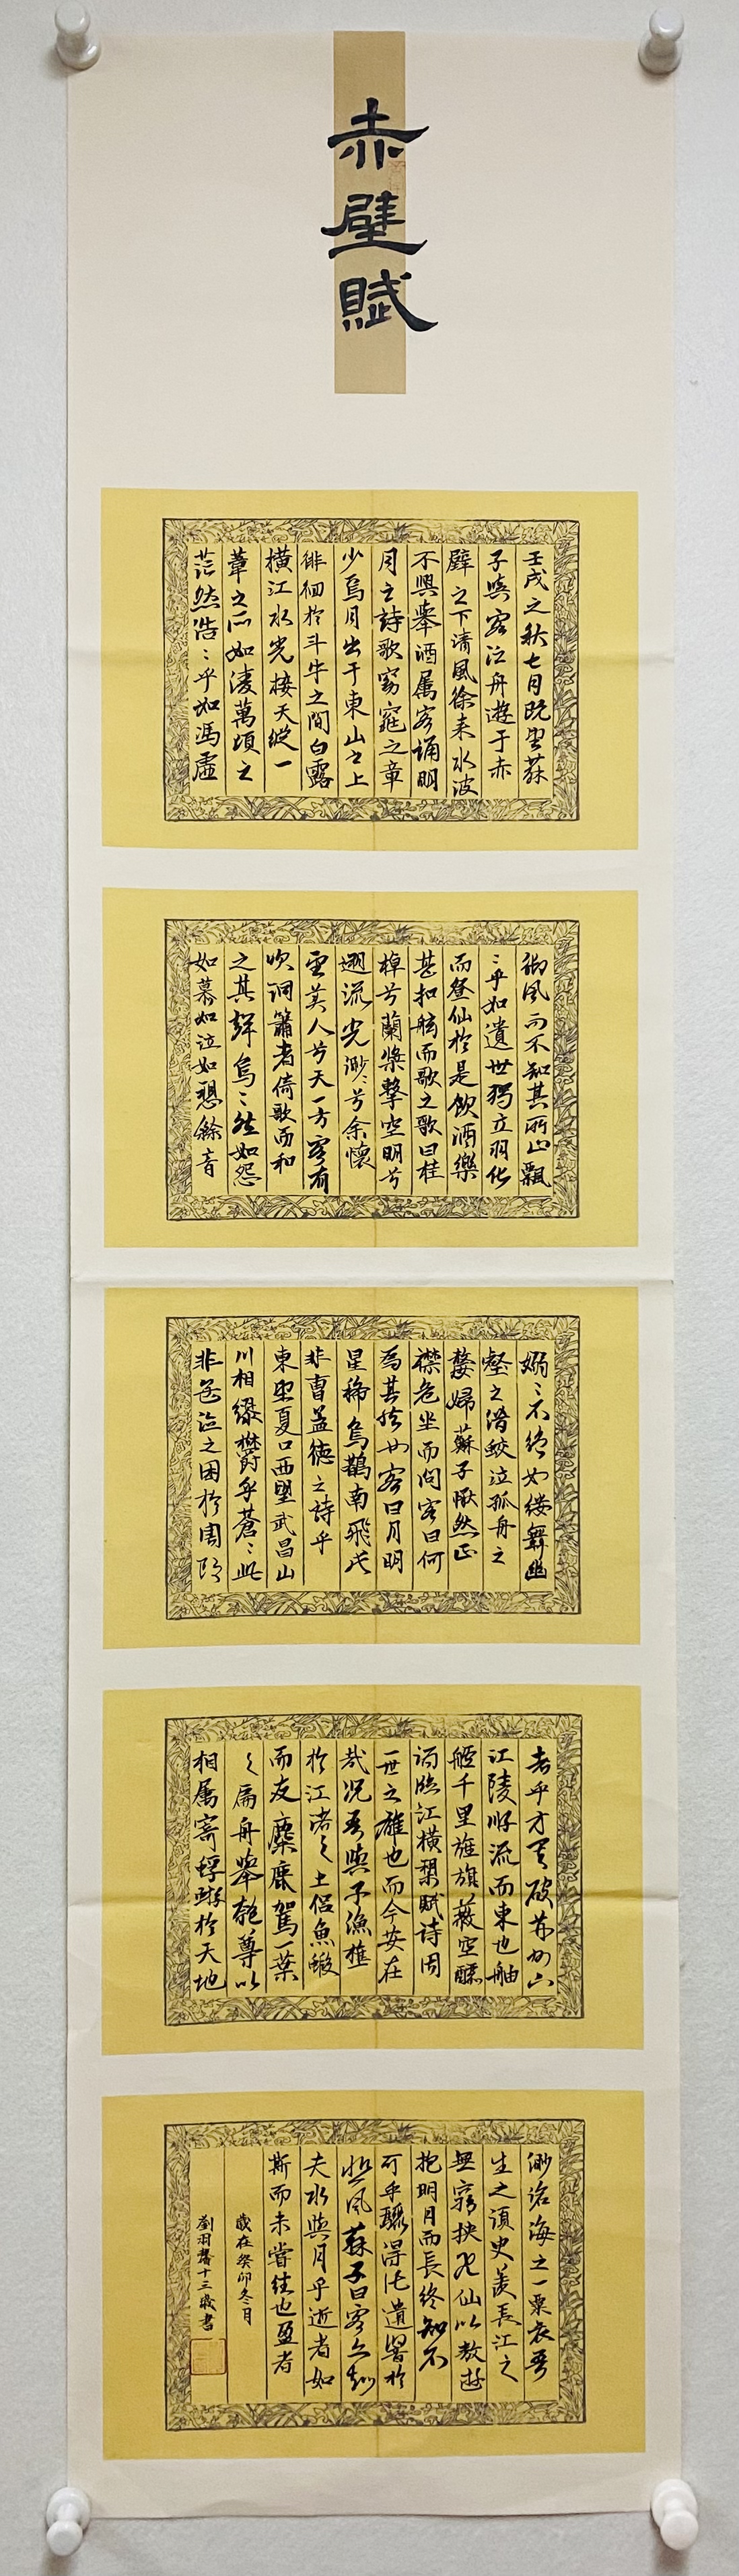 赤壁賦
壬戌之秋七月既望蘇
子與客泛舟遊于赤
壁之下清風徐来水波
不興舉酒属客誦明
月之詩歌窈窕之章
少焉月出于東山之上
徘徊於斗牛之間白露
橫江水光接天縱一
葦之所如淩萬頃之
茫然浩〻乎如馮虛
御風而不知其所止飄
〻乎如遺世獨立羽化
而登仙於是飲酒樂
甚扣舷而歌之歌曰桂
棹兮蘭槳擊空明兮
遡流光渺〻兮余懷
望美人兮天一方客有
吹洞簫者倚歌而和
之其聲烏〻然如怨
如慕如泣如愬餘音
嫋〻不絶如縷舞幽
壑之潛蛟泣孤舟之
嫠婦蘇子愀然正
襟危坐而问客曰何
為其然也客曰月明
星稀烏鵲南飛此
非曹孟德之詩乎
東望夏口西望武昌山
川相繆欝乎蒼〻此
非孟德之困於周郎
者乎方其破荊州下
江陵順流而東也舳
艫千里旌旗蔽空釃
酒臨江橫槊賦诗固
一世之雄也而今安在
哉况吾與子漁樵
於江渚之上侣魚蝦
而友麋鹿駕一葉
之扁舟舉匏尊以
相属寄蜉蝣於天地
渺滄海之一粟哀吾
生之須臾羡長江之
無窮挾飛仙以敖遊
抱明月而長終知不
可乎驟得託遺響於
悲風蘇子曰客亦知
夫水與月乎逝者如
斯而未嘗往也盈者
歲在癸卯冬月
劉羽馨十三歲書